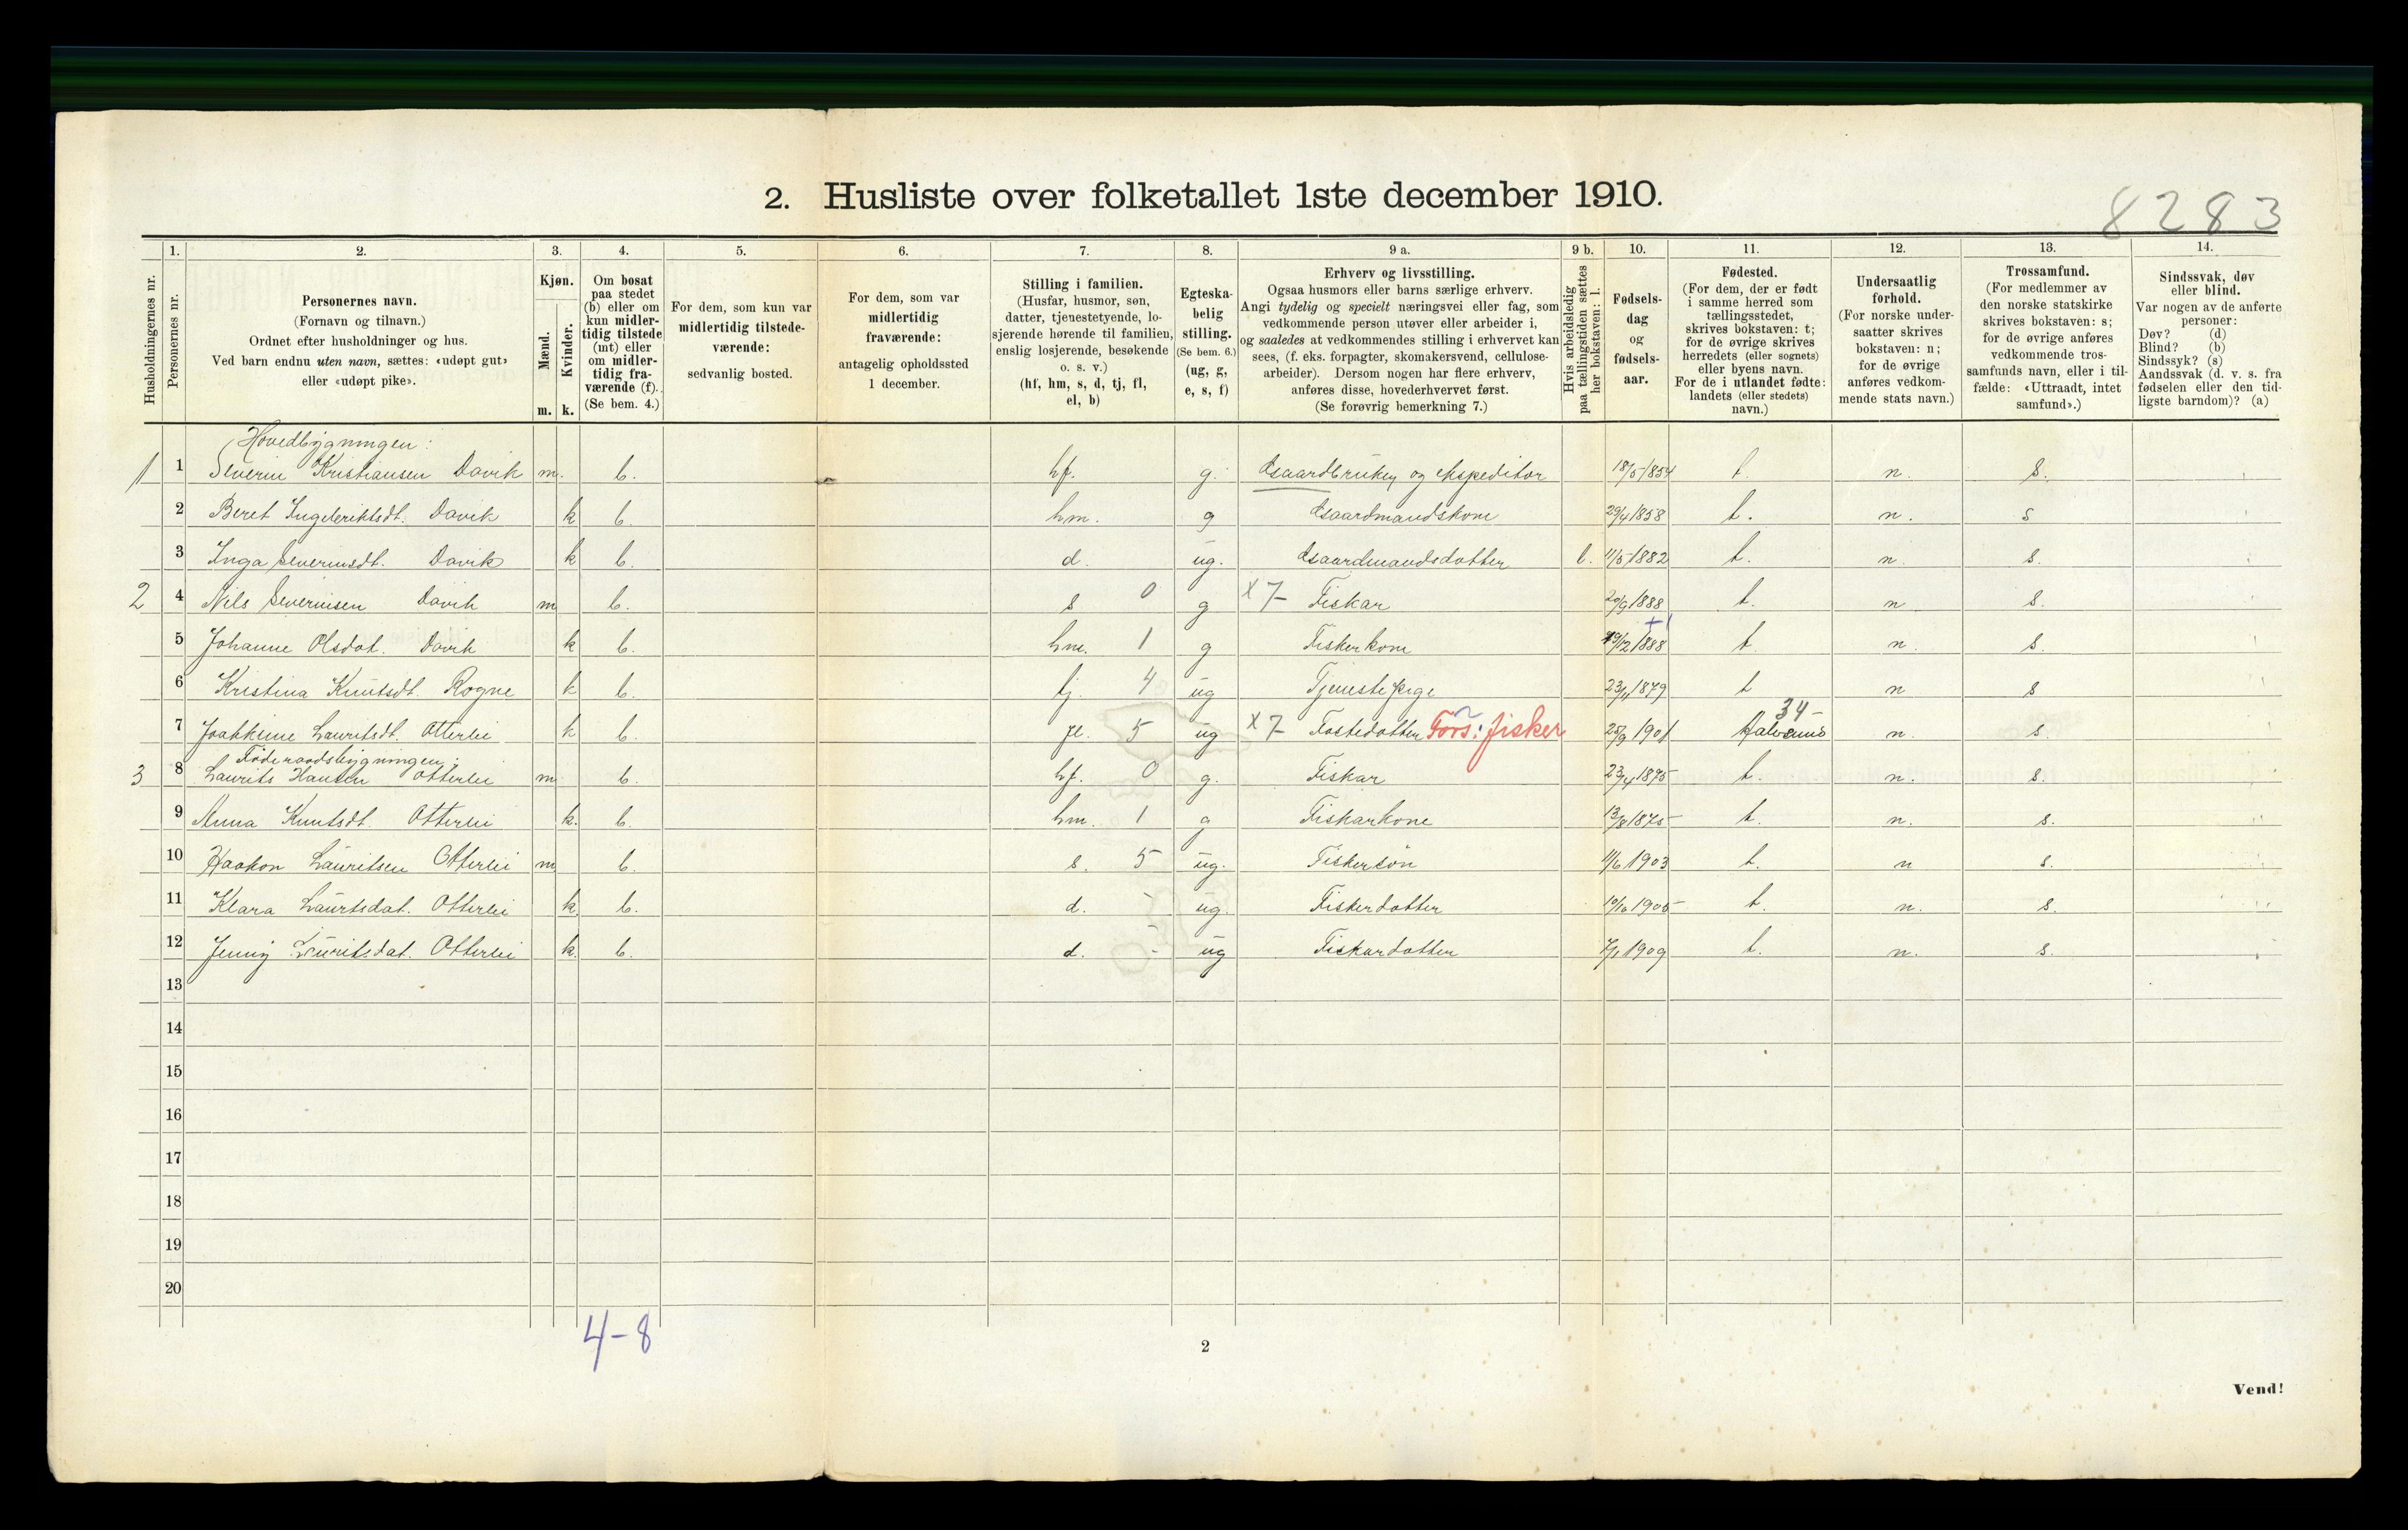 2. Husliste over folketallet 1ste december 1910.
8283
Husholdningernes nr.
1. Personernes nr.
2. Personernes navn.
(Fornavn og tilnavn.)
Ordnet efter husholdninger og hus.
Ved barn endnu uten navn, sættes: «udøpt gut»
eller «udøpt pike».
3. Kjøn.
Mænd. Kvinder.
m. k.
4. Om bosat
paa stedet
(b) eller om
kun midler-
tidig tilstede
(mt) eller
om midler-
tidig fra-
værende (f).
(Se bem. 4.)
5. For dem, som kun var
midlertidig tilstede-
værende:
sedvanlig bosted.
6. For dem, som var
midlertidig
fraværende:
antagelig opholdssted
1 december.
7. Stilling i familien.
(Husfar, husmor, søn,
datter, tjenestetyende, lo-
sjerende hørende til familien,
enslig losjerende, besøkende
o. s. v.)
(hf, hm, s, d, tj, fl,
el, b)
8. Egteska-
belig
stilling.
(Se bem. 6.)
(ug, g,
e, s, f)
9 a. Erhverv og livsstilling.
Ogsaa husmors eller barns særlige erhverv.
Angi tydelig og specielt næringsvei eller fag, som
vedkommende person utøver eller arbeider i,
og saaledes at vedkommendes stilling i erhvervet kan
sees, (f. eks. forpagter, skomakersvend, cellulose-
arbeider). Dersom nogen har flere erhverv,
anføres disse, hovederhvervet først.
(Se forøvrig bemerkning 7.)
9 b. Hvis arbeidsledig
paa tællingstiden sættes
her bokstaven: l.
10. Fødsels-
dag
og
fødsels-
aar.
11. Fødested.
(For dem, der er født
i samme herred som
tællingsstedet,
skrives bokstaven: t;
for de øvrige skrives
herredets (eller sognets)
eller byens navn.
For de i utlandet fødte:
landets (eller stedets)
navn.)
12. Undersaatlig
forhold.
(For norske under-
saatter skrives
bokstaven: n;
for de øvrige
anføres vedkom-
mende stats navn.)
13. Trossamfund.
(For medlemmer av
den norske statskirke
skrives bokstaven: s;
for de øvrige anføres
vedkommende tros-
samfunds navn, eller i til-
fælde: «Uttraadt, intet
samfund».)
14. Sindssvak, døv
eller blind.
Var nogen av de anførte
personer:
Døv? (d)
Blind? (b)
Sindssyk? (s)
Aandssvak (d. v. s. fra
fødselen eller den tid-
ligste barndom)? (a)
Hovedbygningen:
1 1 Severin Kristiansen Davik m. b. hf. g. Gaardbruker og ekspeditør 18/5 1854 t. n. s.
2 Beret Ingebriktsdt. Davik k b. hm. g Gaardmandskone 29/4 1858 t. n. s
3 Inga Severinsdt. Davik k b. d. ug. Gaardmandsdatter l. 11/5 1882 t. n. s.
2 4 Nils Severinsen Davik m b. s 0 g x 7- Fiskar 20/9 1888 t. n s.
5 Johanne Olsdat. Davik k b. hm. 1 g Fiskerkone 29/12 1888 t. n. s.
6 Kristina Knutsdt. Rogne k b. tj. 4 ug Tjenestepige 23/11 1879 t n s
7 Joakkime Lauritsdt. Otterlei k b. fl. 5 ug x 7- Fostedatter Fors: fisker 25/9 1901 34- n. s.
Føderaadsbygningen:
3 8 Laurits Hansen Otterlei m b. hf. 0 g. Fiskar 23/4 1875 t. n. s.
9 Anna Knutsdt. Otterlei k. b. hm. 1 g Fiskarkone 13/8 1875 t. n. s.
10 Haakon Lauritsen Otterlei m b. s. 5 ug. Fiskersøn 11/6 1903 t. n s.
11 Klara Lauritsdat. Otterlei k. b. d. - ug. Fiskerdatter 10/10 1905 t. n. s.
12 Jenny Lauritsdat. Otterlei k. b. d. - ug Fiskardatter 7/1 1909 t. n. s.
13
14
15
16
17
18
19
20
4-8
2
Vend!